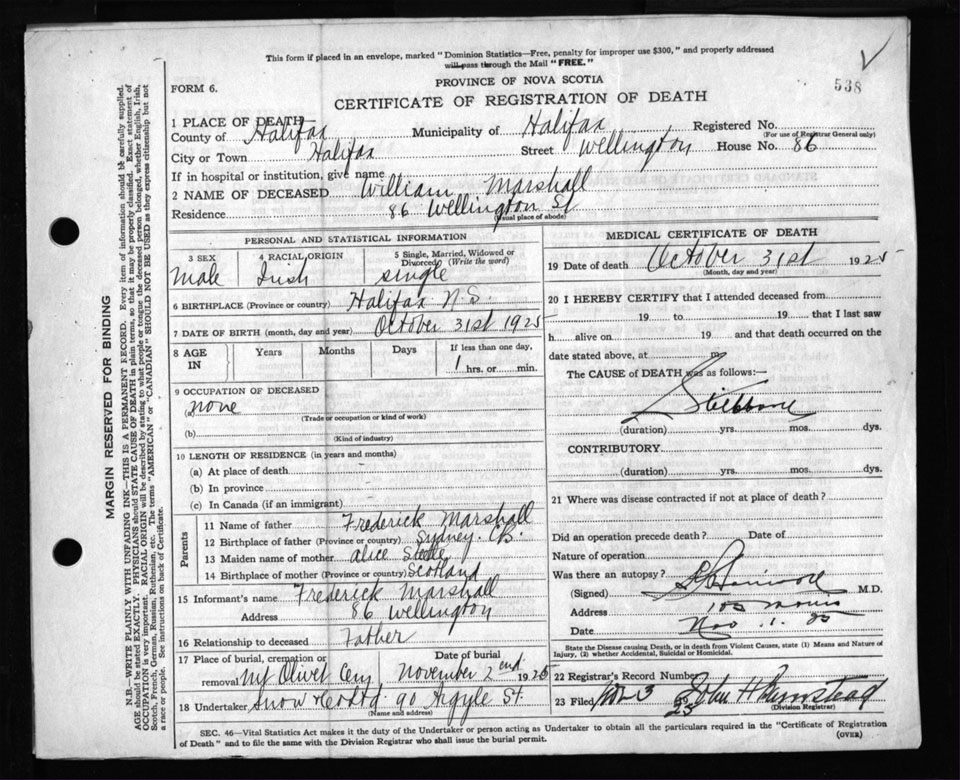 This form if placed in an envelope, marked "Dominion Statistics—Free, penalty for improper use $300," and properly addressed
will pass through the Mail "FREE."
PROVINCE OF NOVA SCOTIA
538
FORM 6.
CERTIFICATE OF REGISTRATION OF DEATH
1 PLACE OF DEATH
County of Halifax Municipality of Halifax Registered No.
(For use of Registrar General only)
City or Town Halifax Street Wellington House No. 86
If in hospital or institution, give name
2 NAME OF DECEASED William Marshall
Residence 86 Wellington St
(Usual place of abode)
PERSONAL AND STATISTICAL INFORMATION
3 SEX 4 RACIAL ORIGIN 5 Single, Married, Widowed or
Divorced (Write the word)
Male Irish single
6 BIRTHPLACE (Province or country) Halifax N.S.
7 DATE OF BIRTH (month, day and year) October 31st 1925
8 AGE IN Years Months Days If less than one day,
1 hrs. or min.
9 OCCUPATION OF DECEASED
(a) none
(Trade or occupation or kind of work)
(b)
(Kind of industry)
10 LENGTH OF RESIDENCE (in years and months)
(a) At place of death
(b) In province
(c) In Canada (if an immigrant)
Parents
11 Name of father Frederick Marshall
12 Birthplace of father (Province or country) Sydney. C.B.
13 Maiden name of mother Alice Steele
14 Birthplace of mother (Province or country) Scotland
15 Informant's name Frederick Marshall
Address 86 Wellington
16 Relationship to deceased Father
17 Place of burial, cremation or Date of burial
removal Mt Olivet Cem, November 2nd 1925
18 Undertaker Snow & Co Ltd 90 Argyle St.
(Name and address)
MEDICAL CERTIFICATE OF DEATH
19 Date of death October 31st 1925
(Month, day and year)
20 I HEREBY CERTIFY that I attended deceased from
19 to 19 that I last saw
h alive on 19 and that death occurred on the
date stated above, at m.
The CAUSE of DEATH was as follows:—
Stillborn
(duration) yrs. mos. dys.
CONTRIBUTORY
(duration) yrs. mos. dys.
21 Where was disease contracted if not at place of death?
Did an operation precede death? Date of
Nature of operation
Was there an autopsy?
(Signed) M.D.
Address 103 Morris
Date Nov. 1. 25
State the Disease causing Death, or in death from Violent Causes, state (1) Means and Nature of
Injury, (2) whether Accidental, Suicidal or Homicidal.
22 Registrar's Record Number
23 Filed Nov 3 25 John H
(Division Registrar)
SEC. 46—Vital Statistics Act makes it the duty of the Undertaker or person acting as Undertaker to obtain all the particulars required in the "Certificate of Registration
of Death" and to file the same with the Division Registrar who shall issue the burial permit.
(OVER)
MARGIN RESERVED FOR BINDING
N.B.—WRITE PLAINLY WITH UNFADING INK—THIS IS A PERMANENT RECORD. Every item of information should be carefully supplied.
AGE should be stated EXACTLY. PHYSICIANS should STATE CAUSE OF DEATH in plain terms, so that it may be properly classified. Exact statement of
OCCUPATION is very important. RACIAL ORIGIN will be described by stating to what people or tongue the deceased person belonged, whether English, Irish,
Scotch, French, German, Russian, Ruthenian, etc. The terms "AMERICAN" or "CANADIAN" SHOULD NOT BE USED as they express citizenship but not
a race or people. See instructions on back of Certificate.